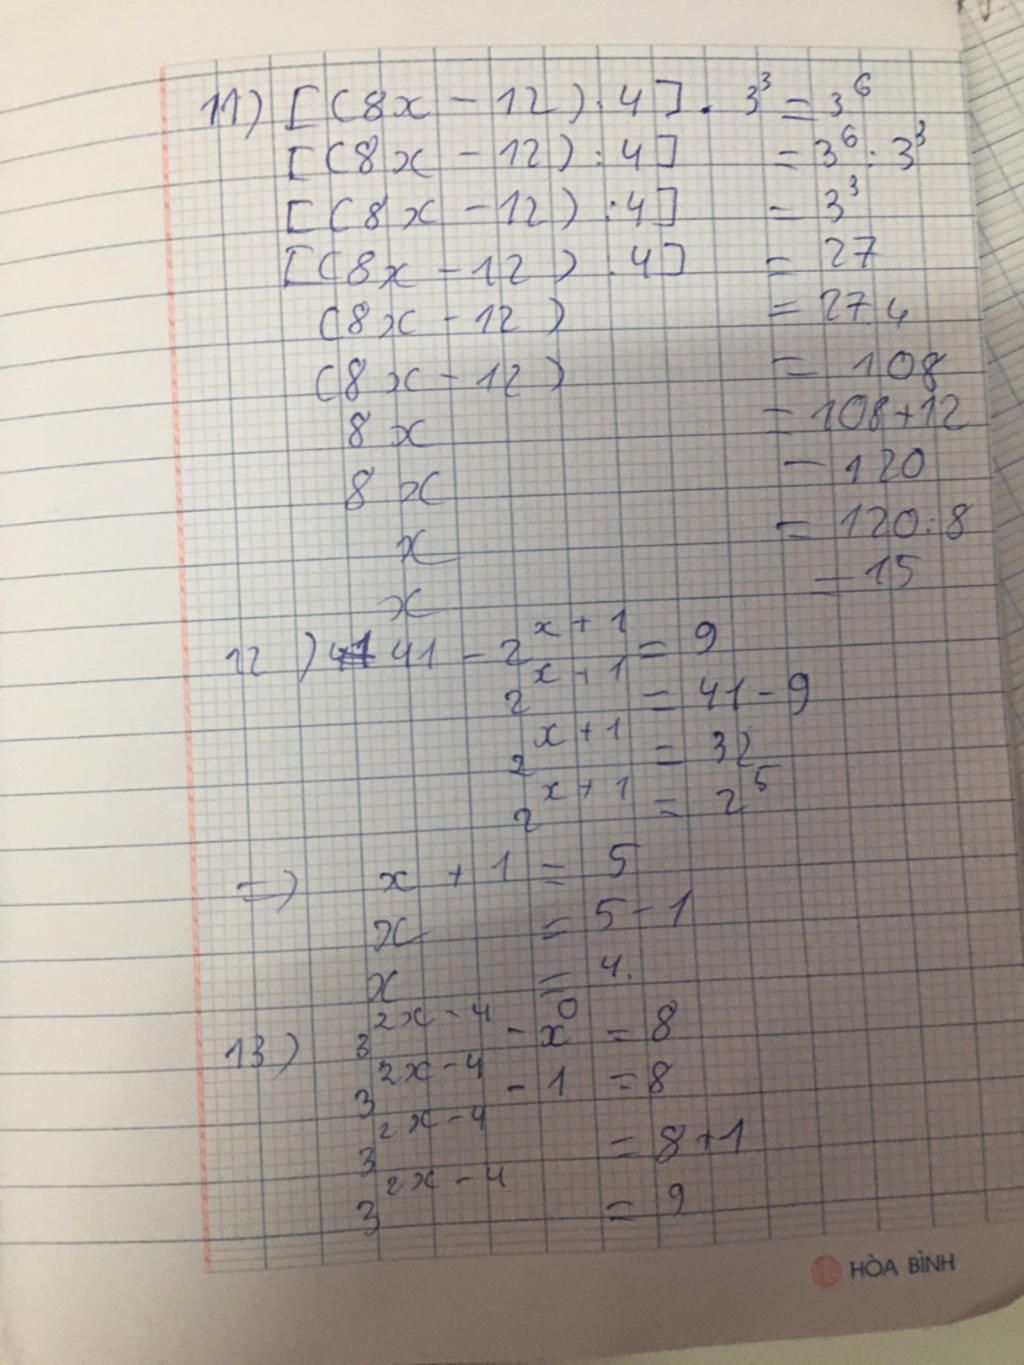 11) [(8x - 12) : 4] . 3³ = 3⁶
[(8x - 12) : 4] = 3⁶ : 3³
[(8x - 12) : 4] = 3³
[(8x - 12) : 4] = 27
(8x - 12) = 27.4
(8x - 12) = 108
8x = 108+12
8x = 120
x = 120:8
x = 15
12) 41 - 2ˣ⁺¹ = 9
2ˣ⁺¹ = 41-9
2ˣ⁺¹ = 32
2ˣ⁺¹ = 2⁵
=> x + 1 = 5
x = 5-1
x = 4.
13) 3²ˣ⁻⁴ - x⁰ = 8
3²ˣ⁻⁴ - 1 = 8
3²ˣ⁻⁴ = 8+1
3²ˣ⁻⁴ = 9
HÒA BÌNH